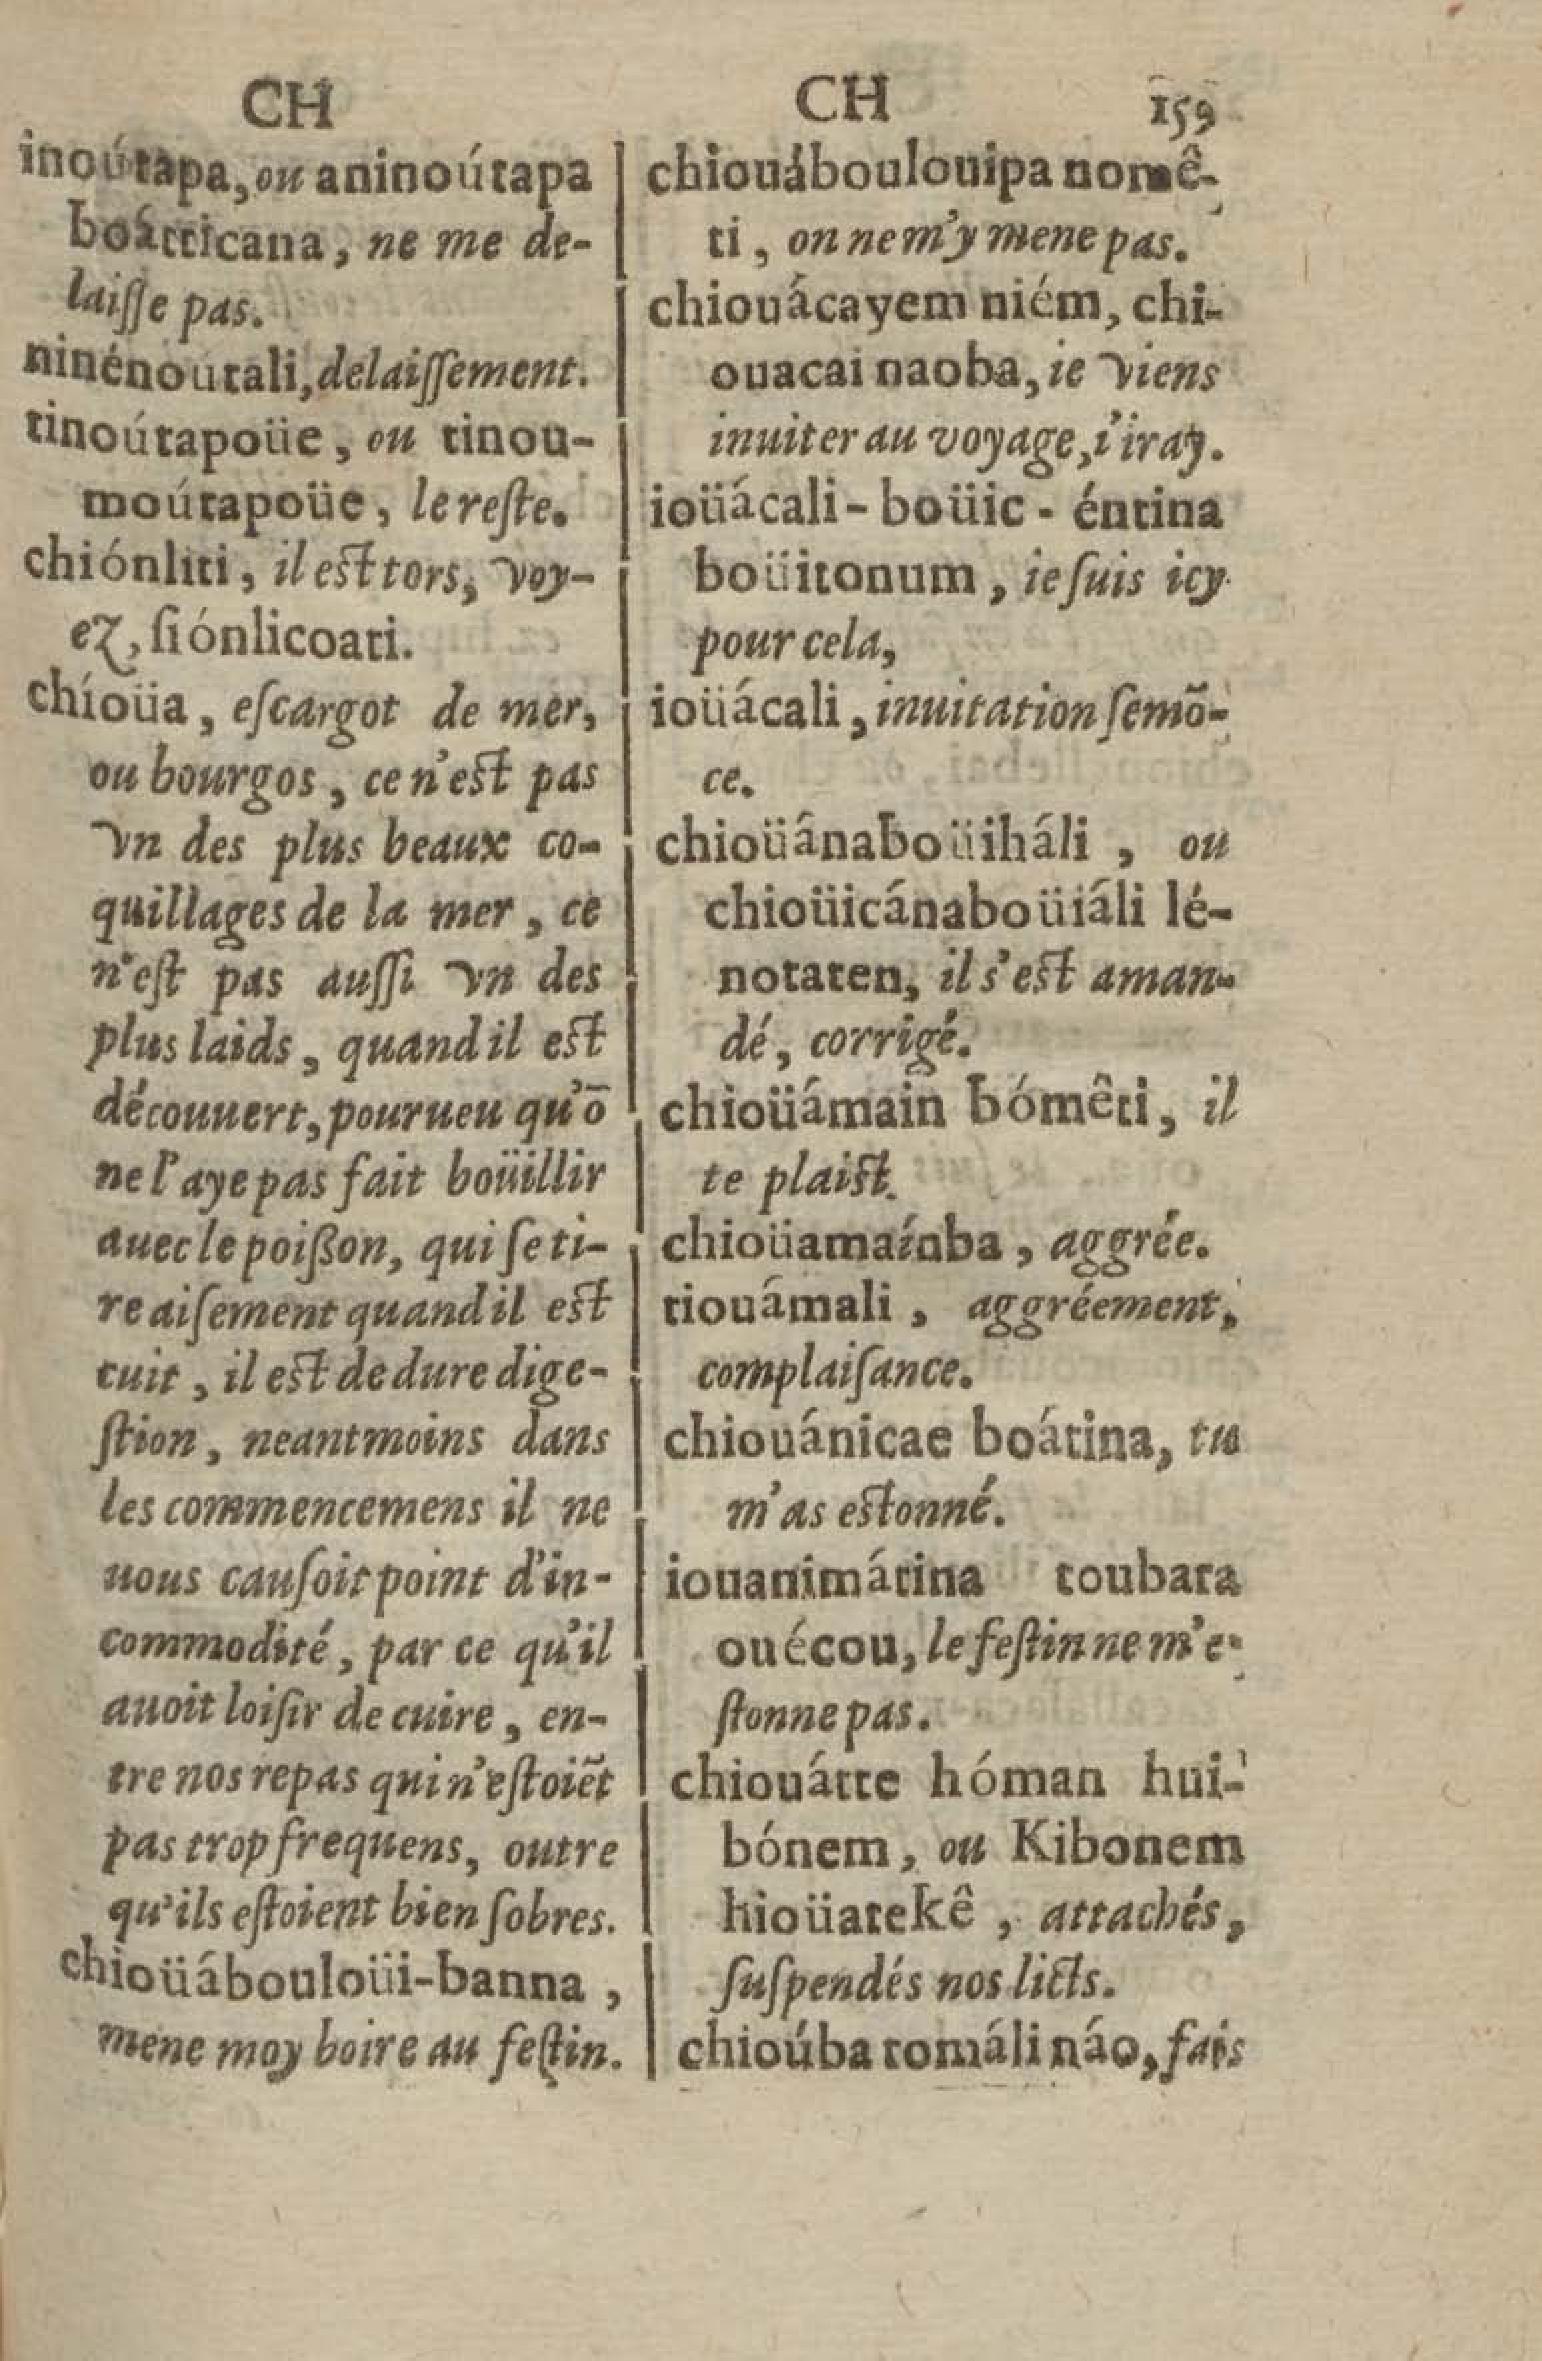 CH
inoútapa, ou aninoútapa
boátticana, ne me de-
laiſſe pas.
ninénoutali, delaiſſement.
tinoútapoüe, ou tinou-
moútapoüe, le reſte.
chiónliti, il est tors, voy-
ez, ſiónlicoati.
chíoüa, eſcargot de mer,
ou bourgos, ce n'est pas
vn des plus beaux co-
quillages de la mer, ce
n'eſt pas auſſi vn des
plus laids, quand il est
découuert, pourueu qu'õ
ne l'aye pas fait boüillir
auec le poißon, qui ſe ti-
re aiſement quand il est
cuit, il est de dure dige-
ſtion, neantmoins dans
les commencemens il ne
nous cauſoit point d'in-
commodité, par ce qu'il
auoit loiſir de cuire, en-
tre nos repas qui n'eſtoiẽt
pas trop frequens, outre
qu'ils eſtoient bien ſobres.
chioüábouloüi-banna,
mene moy boire au feſtin.
CH 159
chiouáboulouipa nomê-
ti, on ne m'y mene pas.
chiouácayem niém, chi-
ouacai naoba, ie viens
inuiter au voyage, i'iray.
ioüácali-boüic-éntina
boüitonum, ie ſuis icy
pour cela,
ioüácali, inuitation ſemõ-
ce.
chioüánaboüiháli, ou
chioüicánaboüiáli lé-
notaten, il s'est aman-
dé, corrigé.
chioüámain bómêti, il
te plaist.
chioüamaínba, aggrée.
tiouámali, aggréement,
complaiſance.
chiouánicae boátina, tu
m'as estonné.
iouanimátina toubara
ouécou, le feſtin ne m'e-
ſtonne pas.
chiouátte hóman hui-
bónem, ou Kibonem
hioüatekê, attachés,
ſuſpendés nos licts.
chioúba tomáli náo, fais